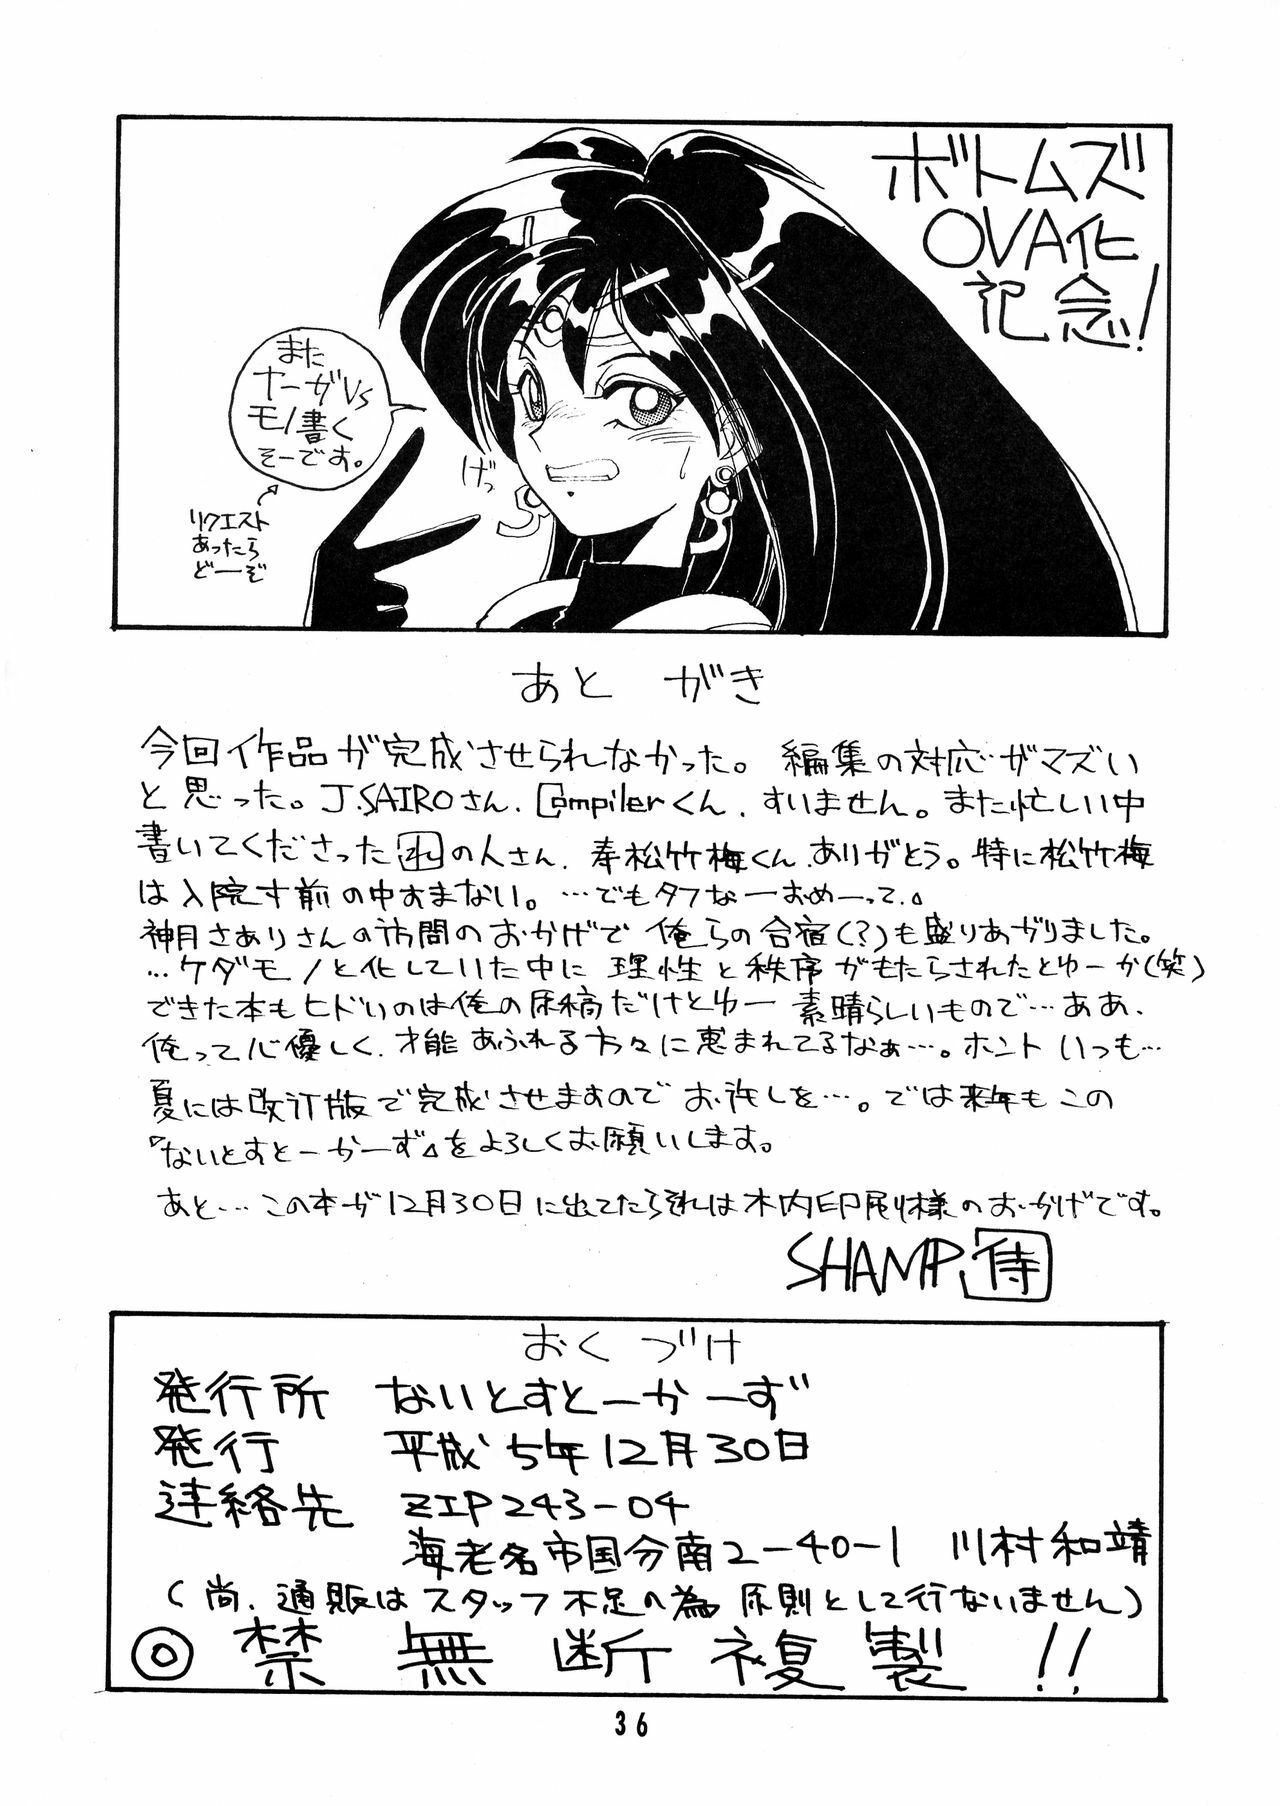 ボトムズ
OVA化
記念!
また
ヤーガVS
モノ書く
そーです。
リクエスト
あったら
どーぞ
げっ
あとがき
今回作品が完成させられなかった。編集の対応がマズい
と思った。J.SAIROさん、Compilerくん、すいません。また忙しい中
書いてくださったの人さん、松竹梅くん、ありがとう。特に松竹梅
は入院寸前の中すまない。…でもタフなーおめーって。
神月さありさんの訪問のおかげで俺らの合宿(?)も盛りあがりました。
…ケダモノと化していた中に理性と秩序がもたらされたとゆーか(笑)
できた本もヒドいのは俺の原稿だけとゆー素晴らしいもので…ああ、
俺って心優しく、才能あふれる方々に恵まれてるなぁ…。ホントいつも…
夏には改訂版で完成させますのでお許しを…。では来年もこの
『ないとすとーかーず』をよろしくお願いします。
あと…この本が12月30日に出てたらそれは木内印刷様のおかげです。
SHAMP侍
おくづけ
発行所 ないとすとーかーず
発行 平成5年12月30日
連絡先 ZIP243-04
海老名市国分南2-40-1 川村和靖
(尚、通販はスタッフ不足の為原則として行ないません)
◎禁無断複製!!
36